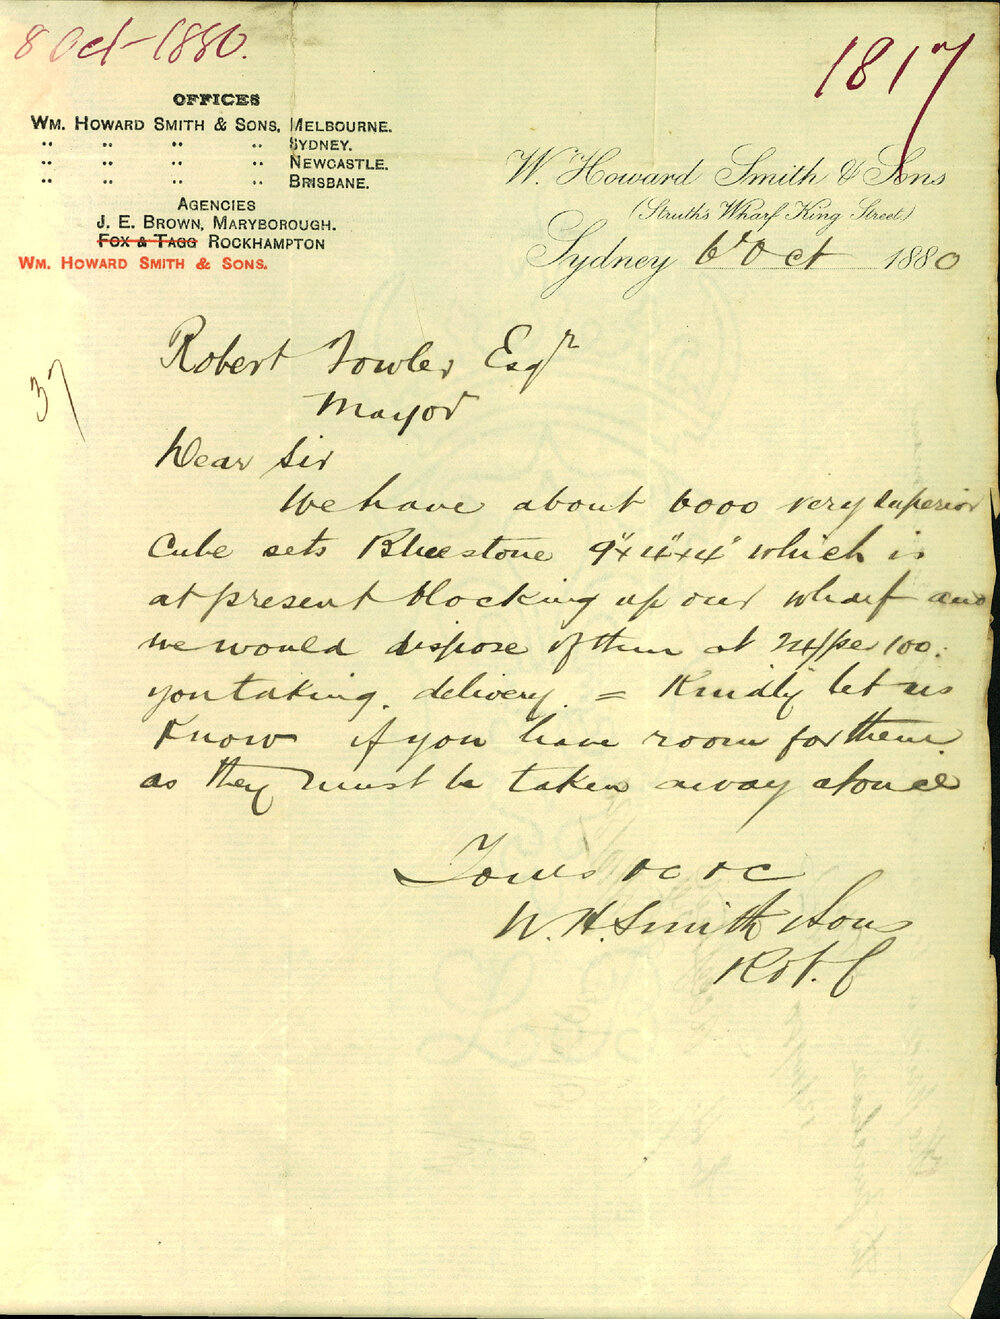 8 Oct - 1880.
1817
OFFICES
WM. HOWARD SMITH & SONS, MELBOURNE.
" " " " SYDNEY.
" " " " NEWCASTLE.
" " " " BRISBANE.
AGENCIES
J. E. BROWN, MARYBOROUGH.
FOX & TAGG ROCKHAMPTON
WM. HOWARD SMITH & SONS.
W. Howard Smith & Sons
(Struth's Wharf King Street)
Sydney 6th Oct 1880
37
Robert Fowler Esqr
Mayor
Dear Sir
We have about 6000 very superior
Cube sets Bluestone 9"x4"x4" which is
at present blocking up our wharf and
we would dispose of them at 24/ per 100.
you taking delivery = Kindly let us
Know if you have room for them
as they must be taken away at once
Yours &c &c
W. H. Smith & Sons